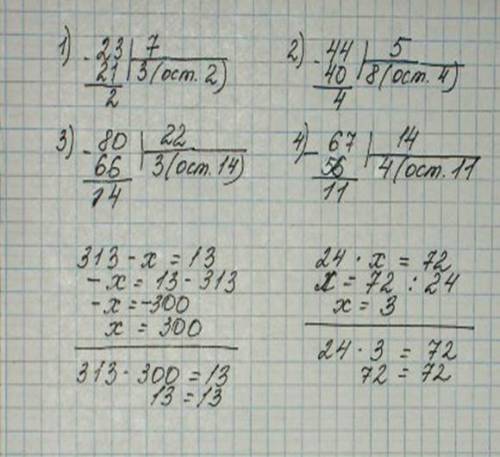 1) - 23 | 7
21 | 3 (ост. 2)
2
2) - 44 | 5
40 | 8 (ост. 4)
4
3) - 80 | 22
66 | 3 (ост. 14)
14
4) - 67 | 14
56 | 4 (ост. 11
11
313 - x = 13
-x = 13 - 313
-x = -300
x = 300
313 - 300 = 13
13 = 13
24 · x = 72
x = 72 : 24
x = 3
24 · 3 = 72
72 = 72